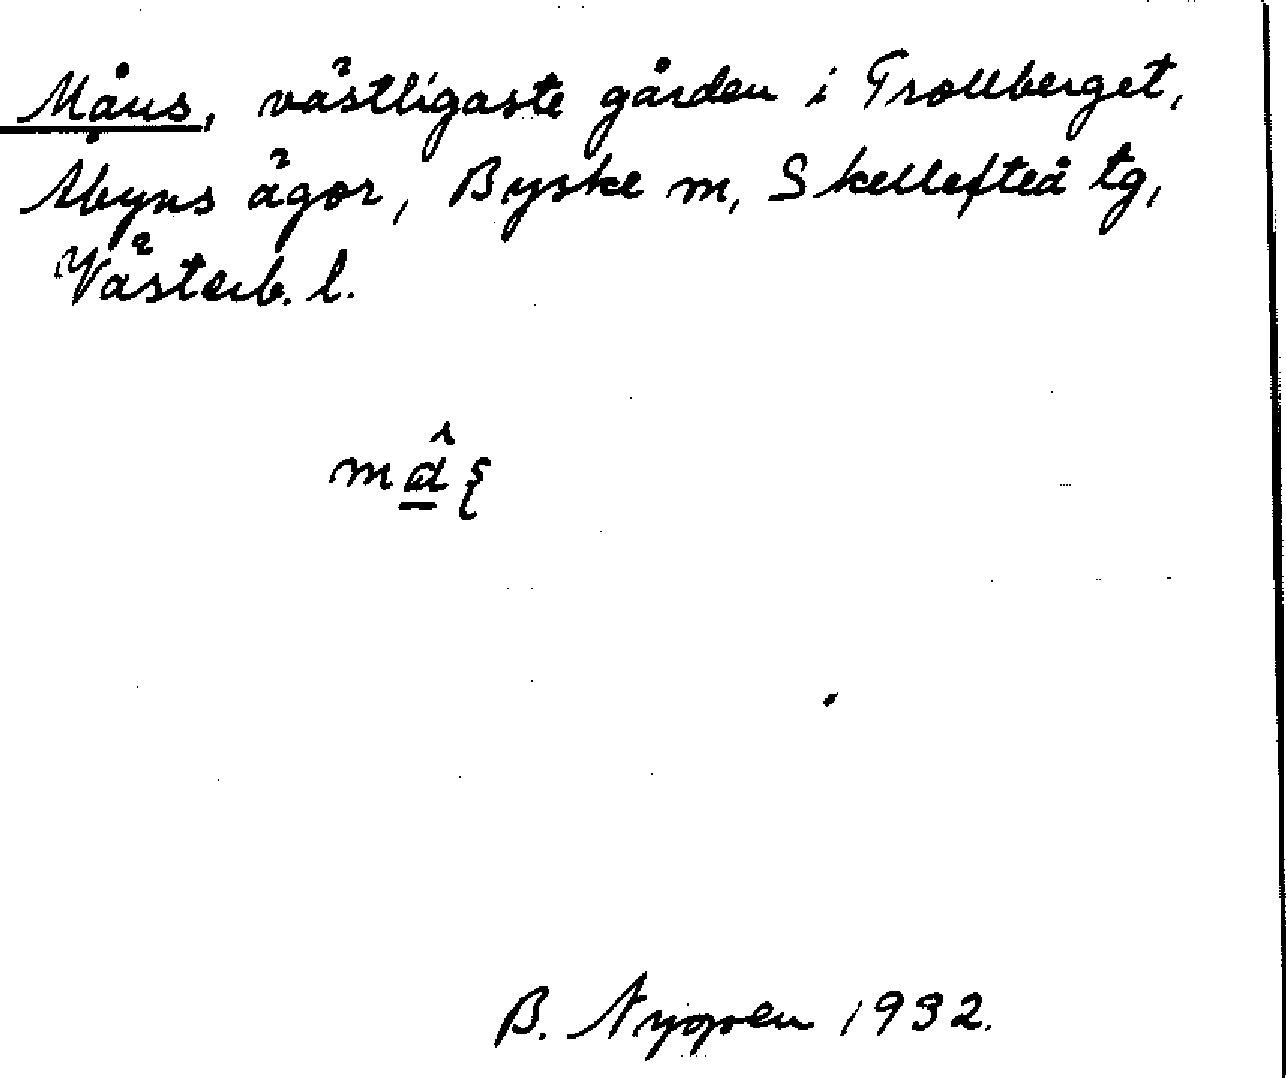 Måns, västligaste gården i Trollberget,
Åbyns ägor, Byske m, Skellefteå tg,
Västerb. l.
B. Nygren 1932.